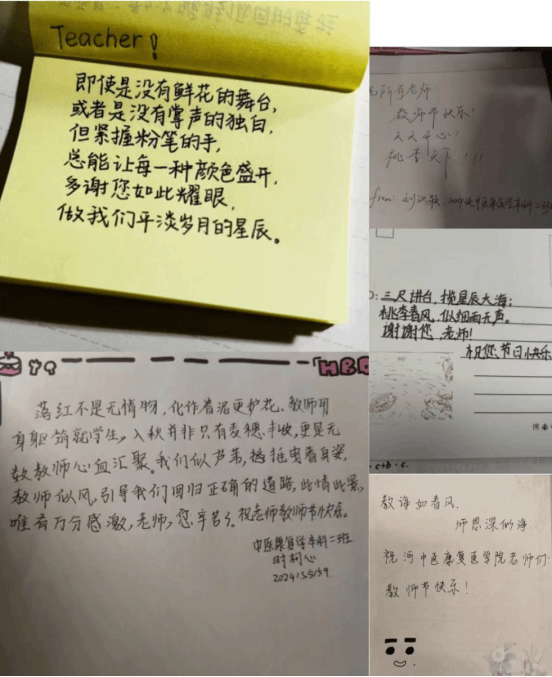 Teacher!
即使是没有鲜花的舞台,
或者是没有掌声的独白,
但紧握粉笔的手,
总能让每一种颜色盛开,
多谢您如此耀眼,
做我们平淡岁月的星辰。
所有老师
教师节快乐!
天天开心!
桃李天下!!!
from:
三尺讲台,揽星辰大海;
桃李春风,似细雨无声。
谢谢您,老师!
祝您节日快乐
落红不是无情物,化作春泥更护花。教师用
身躯筑就学生。入秋并非只有麦穗丰收,更是无
数教师心血汇聚。我们似芦苇,摇曳着身姿,
教师似风,引导我们回归正确的道路,此情此景,
唯有万分感激,老师,您辛苦了。祝老师教师节快乐。
中医康复学本科二班
时柯心
2024155159
教诲如春风,
师恩深似海
祝河中医康复医学院老师们:
教师节快乐!